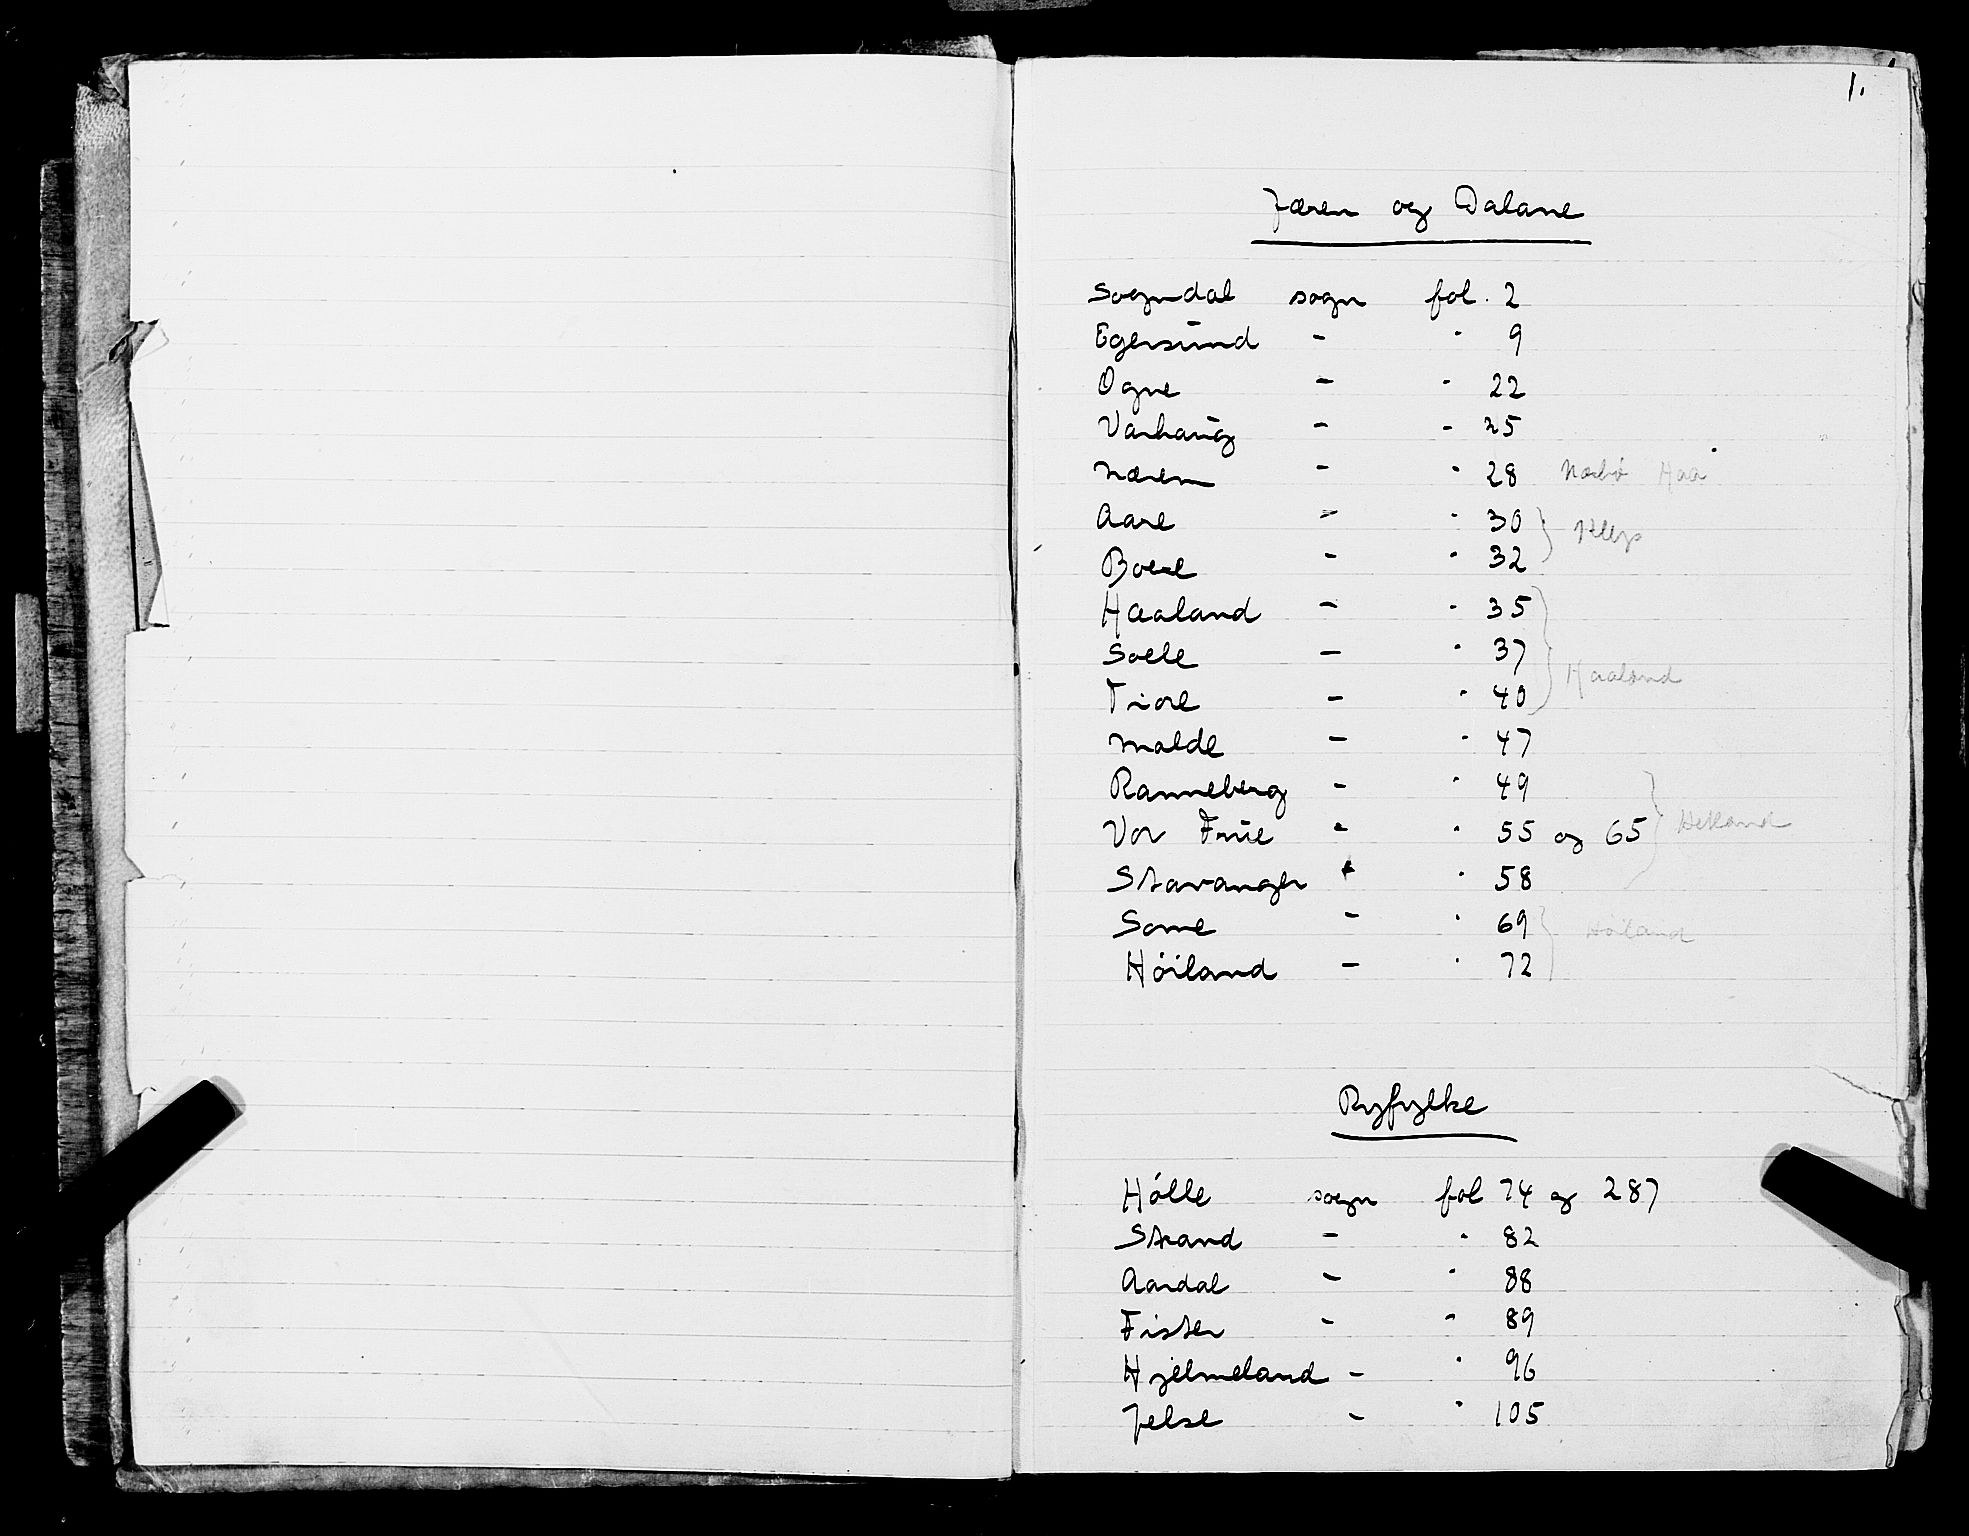 1.
Jæren og Dalane
Sogndal sogn fol. 2
Egersund - " 9
Ogne - " 22
Varhaug - " 25
Næren - " 28 Nærbø Haa
Aare - " 30
Klep
Boere - " 32
Haaland - " 35
Soele - " 37
Haaland
Tiore - " 40
Malde - " 47
Ranneberg - " 49
Vor Frue - " 55 og 65 Hetland
Stavanger - " 58
Some - " 69
Høiland
Høiland - " 72
Ryfylke
Hølle sogn fol 74 og 287
Strand - " 82
Aardal - " 88
Fister - " 89
Hjelmeland - " 96
Jelse - " 105